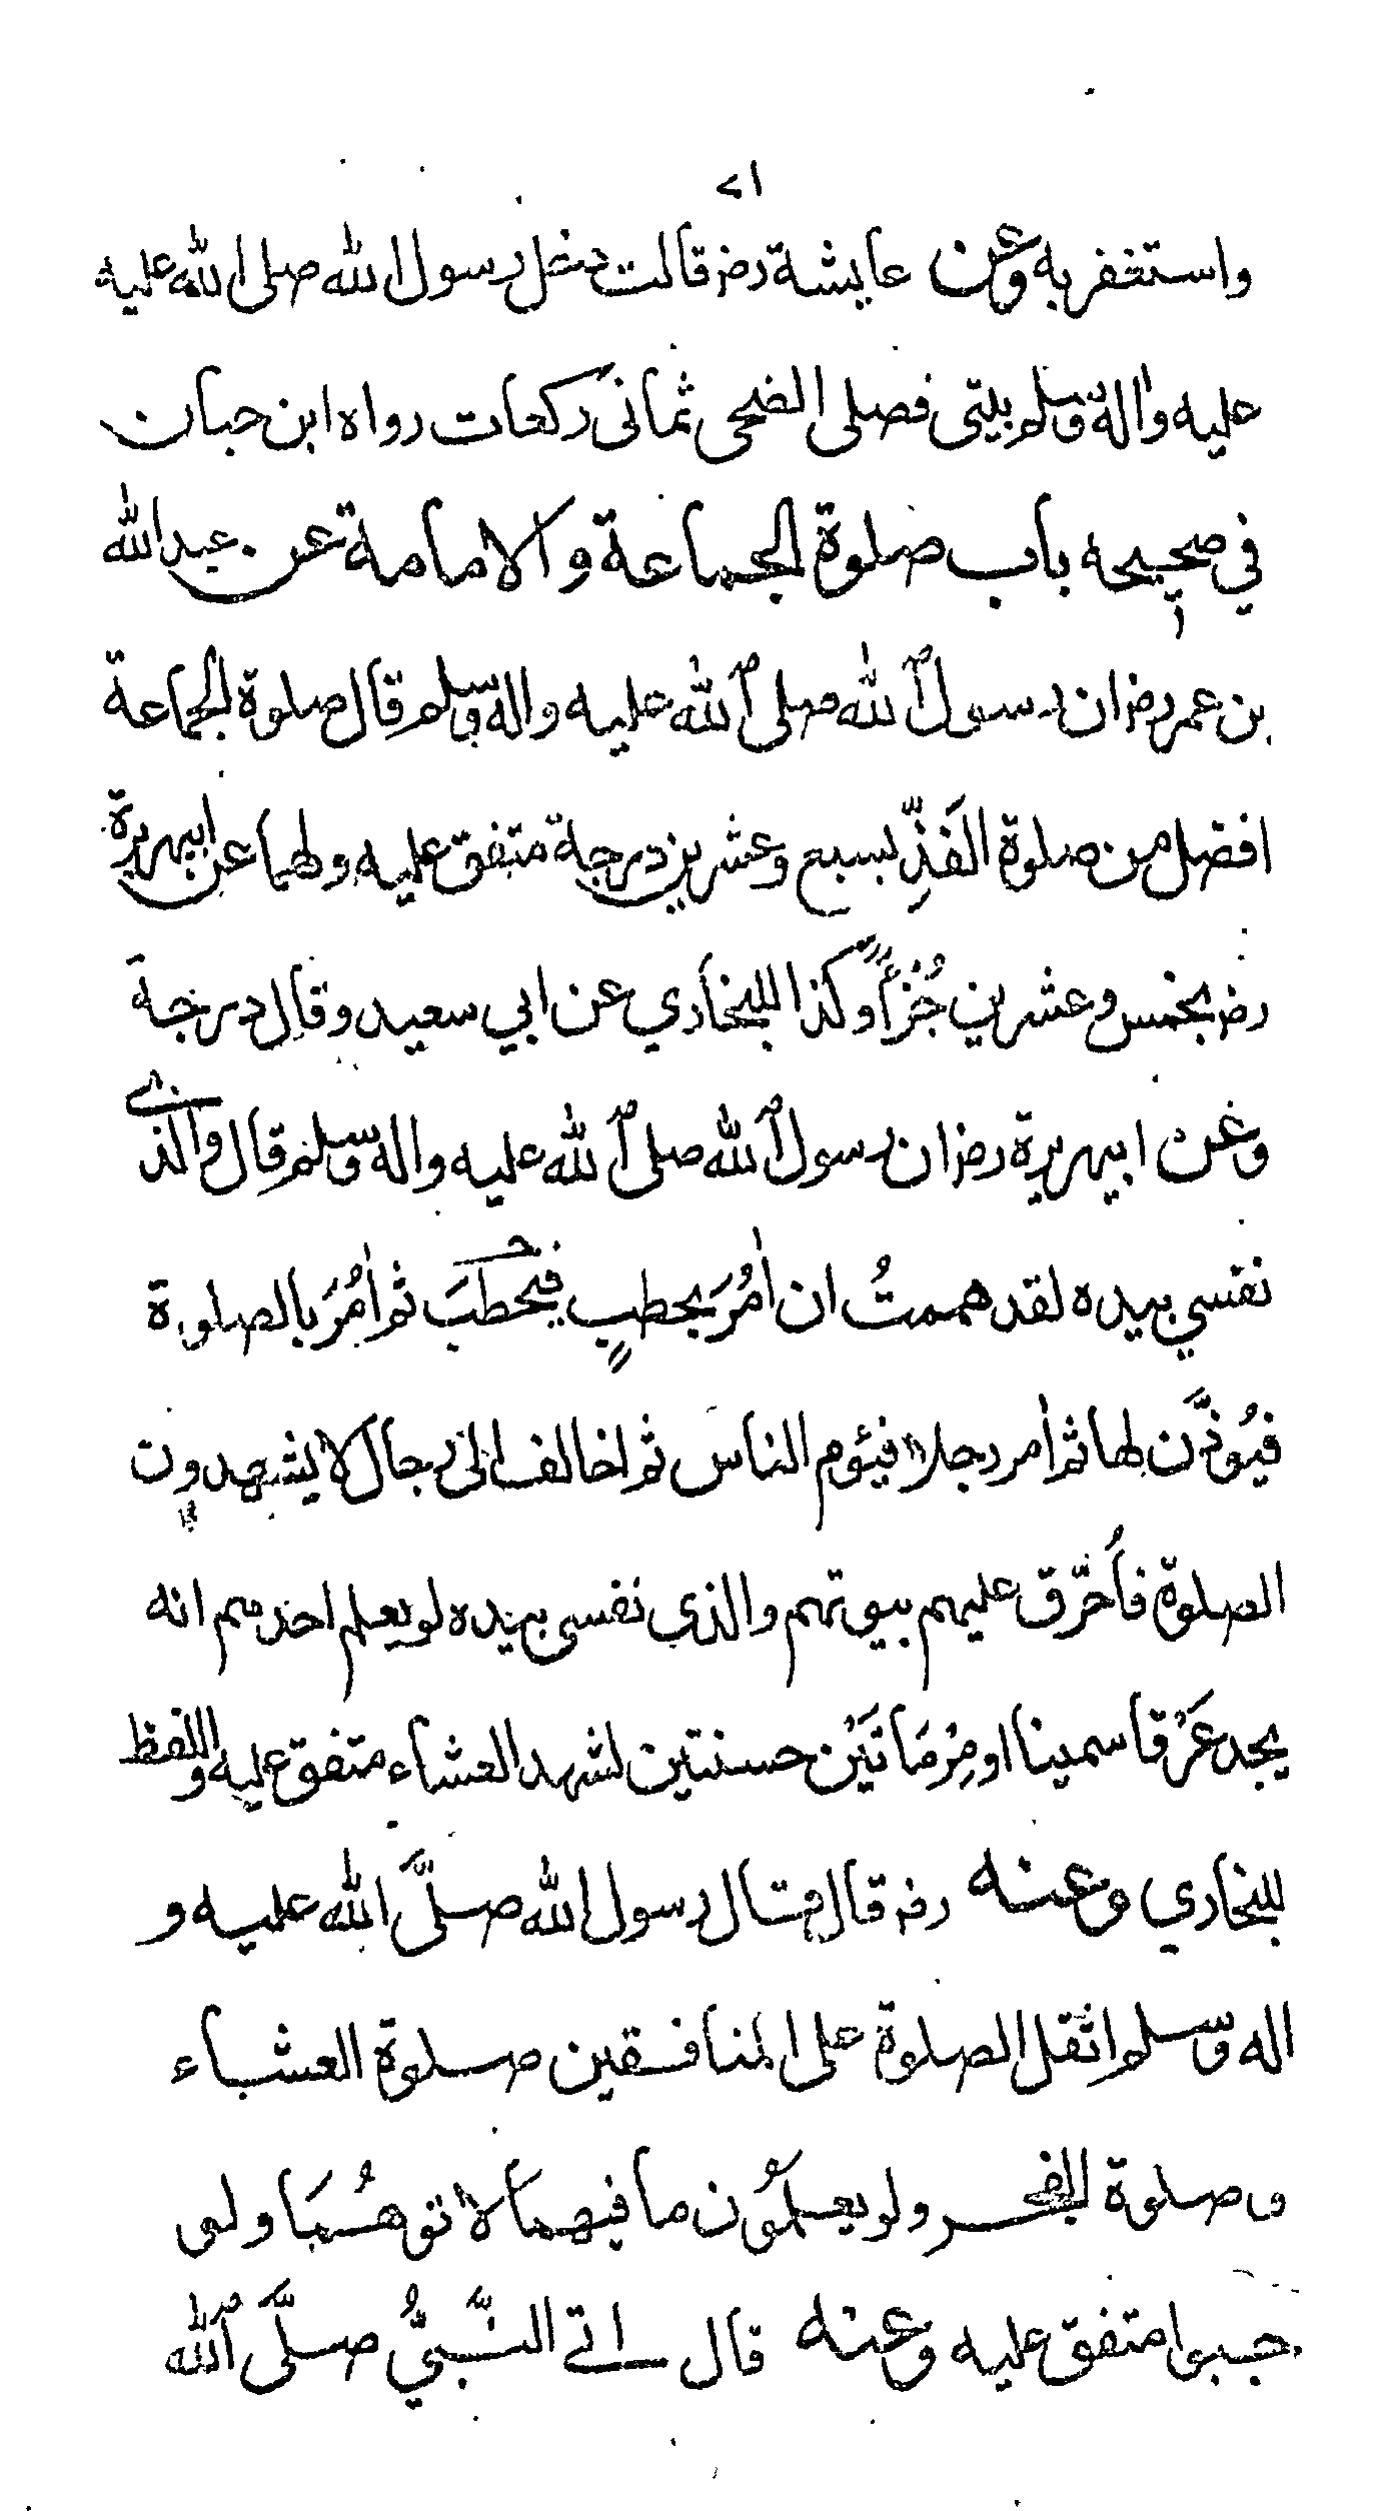 ٧١
واستغفر به وعن عايشة رض قالت دخل رسول الله صلى الله عليه
عليه واله وسلم بيتى فصلى الضحى ثمانى ركعات رواه ابن حبان
في صحيحه باب صلوة الجماعة والامامة عن عبد الله
بن عمر رض ان رسول الله صلى الله عليه واله وسلم قال صلوة الجماعة
افضل من صلوة الفَذِّ بسبع وعشرين درجة متفق عليه ولهما عن ابيهريرة
رض بخمس وعشرين جُزْأً وكذا للبخاري عن ابي سعيد وقال درجة
وعن ابيهريرة رض ان رسول الله صلى الله عليه واله وسلم قال والذي
نفسي بيده لقد هممتُ ان اٰمُرَ بحطبٍ فيحطبَ ثم اٰمُرَ بالصلوة
فيُؤذَّن لها ثم اٰمر رجلا فيؤم الناس ثم اخالف الى رجال لا يشهدون
الصلوة فأُحَرّق عليهم بيوتهم والذي نفسى بيده لو يعلم احدهم انه
يجد عَرْقا سمينا او مِرْمَاتَيْن حسنتين لشهد العشاء متفق عليه واللفظ
للبخاري وعنه رض قال قال رسول الله صلَّى الله عليه و
اله وسلم اثقل الصلوة على المنافقين صلوة العشاء
وصلوة الفجر ولو يعلمون ما فيهما لاتوهُمَا ولو
حبوا متفق عليه وعنه قال اتى النَّبيَّ صلَّى الله